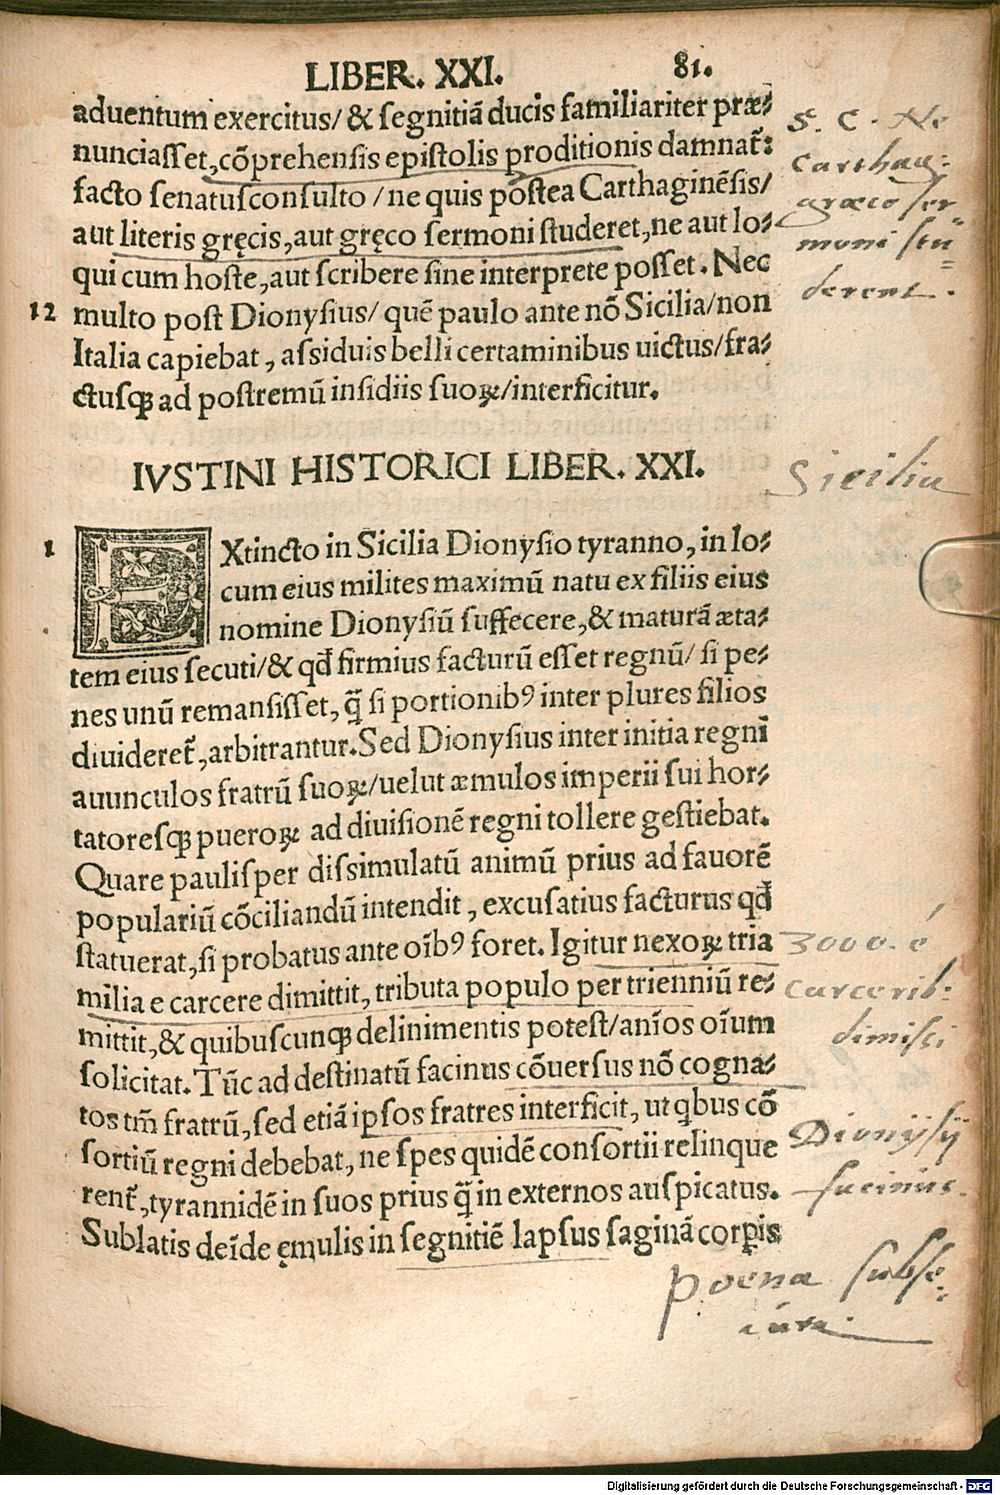 LIBER. XXI. 81.
aduentum exercitus/ & ſegnitiā ducis familiariter præ⸗
nunciaſſet, cōprehenſis epiſtolis proditionis damnat᷑:
facto ſenatuſconſulto / ne quis poſtea Carthaginēſis/
aut literis gręcis, aut gręco ſermoni ſtuderet, ne aut lo⸗
qui cum hoſte, aut ſcribere ſine interprete poſſet. Nec
12 multo poſt Dionyſius/ quē paulo ante nō Sicilia/ non
Italia capiebat, aſſiduis belli certaminibus uictus/ fra⸗
ctuſꝗ ad poſtremū inſidiis ſuoꝝ/ interficitur.
S. C. Ne
carthag:
græco ſer
moni ſtu⸗
derent.
IVSTINI HISTORICI LIBER. XXI.
Sicilia
1 EXtincto in Sicilia Dionyſio tyranno, in lo⸗
cum eius milites maximū natu ex filiis eius
nomine Dionyſiū ſuffecere, & maturā æta⸗
tem eius ſecuti/ & qđ firmius facturū eſſet regnū/ ſi pe⸗
nes unū remanſiſſet, q̄ ſi portionibꝰ inter plures filios
diuideret᷑, arbitrantur. Sed Dionyſius inter initia regni
auunculos fratrū ſuoꝝ/ uelut æmulos imperii ſui hor⸗
tatoreſꝗ pueroꝝ ad diuiſionē regni tollere geſtiebat.
Quare pauliſper diſſimulatū animū prius ad fauorē
populariū cōciliandū intendit, excuſatius facturus qđ
ſtatuerat, ſi probatus ante oīb9 foret. Igitur nexoꝝ tria
milia e carcere dimittit, tributa populo per trienniū re⸗
mittit, & quibuſcunꝗ delinimentis poteſt/ aīos oīum
ſolicitat. Tūc ad deſtinatū facinus cōuerſus nō cogna⸗
tos tm̄ fratrū, ſed etiā ipſos fratres interficit, ut qbus cō
ſortiū regni debebat, ne ſpes quidē conſortii relinque
rent᷑, tyrannidē in ſuos prius q̄ in externos auſpicatus.
Sublatis deīde ęmulis in ſegnitiē lapſus ſaginā corꝑis
3000. é
carcerib:
dimiſsi
Dionyſij
facinus.
poena ſubſe⸗
Digitalisierung gefördert durch die Deutsche Forschungsgemeinschaft - DFG